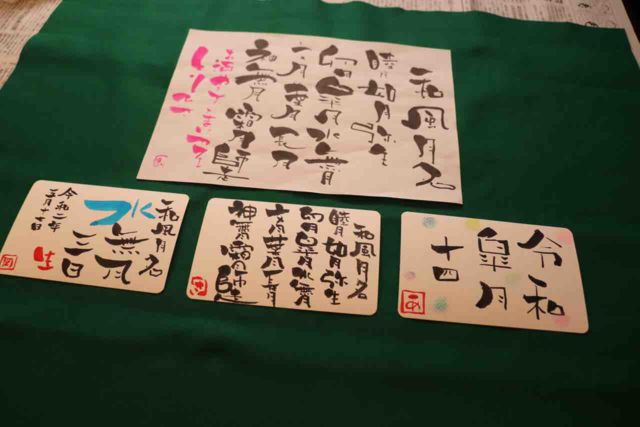 和風月名
睦月如月弥生
卯月皐月水無月
文月葉月長月
神無月霜月師走
和風月名
水無月
三日
令和二年
五月十七日
生
和風月名
睦月如月弥生
卯月皐月水無月
文月葉月長月
神無月霜月師走
令和
皐月
十四